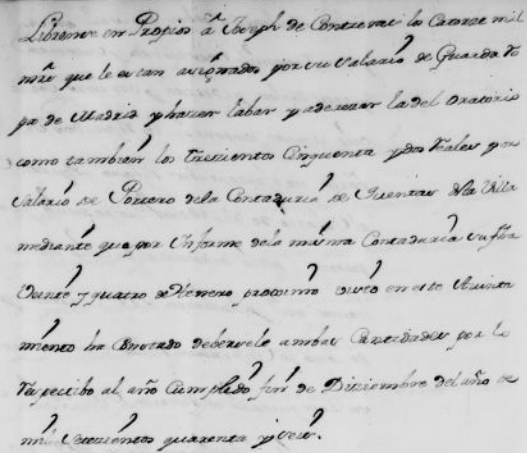 Librense en Propios â Joseph de Contreras los Catorze mil
mrs que le estan asignados por su salario de Guarda Ro
pa de Madrid y hazer labar y aderezar la del Oratorio
como tambien los trezientos Cinquenta y dos Reales por
Salario de Portero de la Contaduria de Quentas de la Villa
mediante que por Informe de la misma Contaduria su fha
Veinte y quatro de Henero proximo visto en este Aiunta
miento ha Constado deversele ambas Cantidades por lo
Respectibo al año Cumplido fin de Diziembre del año de
mil Setezientos quarenta y seis.